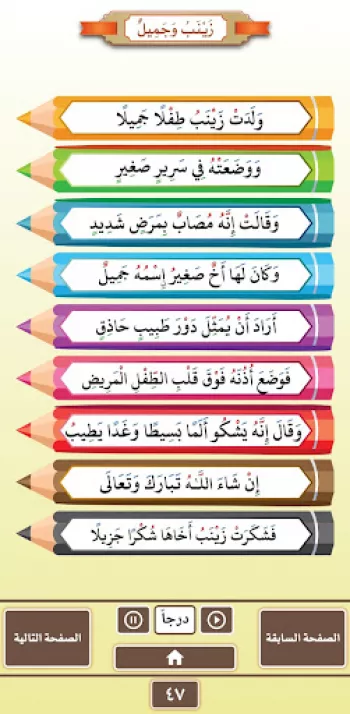 زَيْنَبُ وَجَمِيلٌ
وَلَدَتْ زَيْنَبُ طِفْلًا جَمِيلًا
وَوَضَعَتْهُ فِي سَرِيرٍ صَغِيرٍ
وَقَالَتْ إِنَّهُ مُصَابٌ بِمَرَضٍ شَدِيدٍ
وَكَانَ لَهَا أَخٌ صَغِيرٌ إِسْمُهُ جَمِيلٌ
أَرَادَ أَنْ يُمَثِّلَ دَوْرَ طَبِيبٍ حَاذِقٍ
فَوَضَعَ أُذُنَهُ فَوْقَ قَلْبِ الطِّفْلِ الْمَرِيضِ
وَقَالَ إِنَّهُ يَشْكُو أَلَمًا بَسِيطًا وَغَدًا يَطِيبُ
إِنْ شَاءَ اللَّهُ تَبَارَكَ وَتَعَالَى
فَشَكَرَتْ زَيْنَبُ أَخَاهَا شُكْرًا جَزِيلًا
الصفحة السابقة
درجاً
الصفحة التالية
٤٧